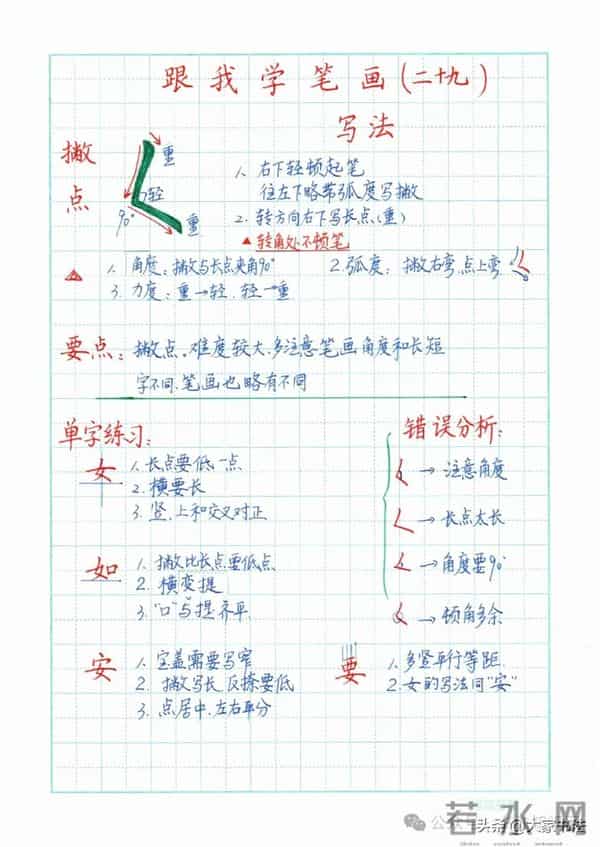 跟我学笔画(二十九)
写法
撇点
重
轻
90°
重
1. 右下轻顿起笔
往左下略带弧度写撇
2. 转方向右下写长点(重)
▲转角处不顿笔
1. 角度:撇与长点夹角90° 2.弧度:撇右弯,点上弯
3. 力度:重→轻.轻→重
要点:撇点.难度较大.多注意笔画角度和长短
字不同.笔画也略有不同
单字练习:
女
1.长点要低一点
2.横要长
3.竖.上和交叉对正
如
1.撇比长点要低点
2.横变提
3."口"与提齐平
安
1.宝盖需要写窄
2.撇写长反捺要低
3.点居中.左右平分
错误分析:
→注意角度
→长点太长
→角度要90°
→顿角多余
要
1.多竖平行等距.
2.女的写法同"安"
若水网
头条@大家书法